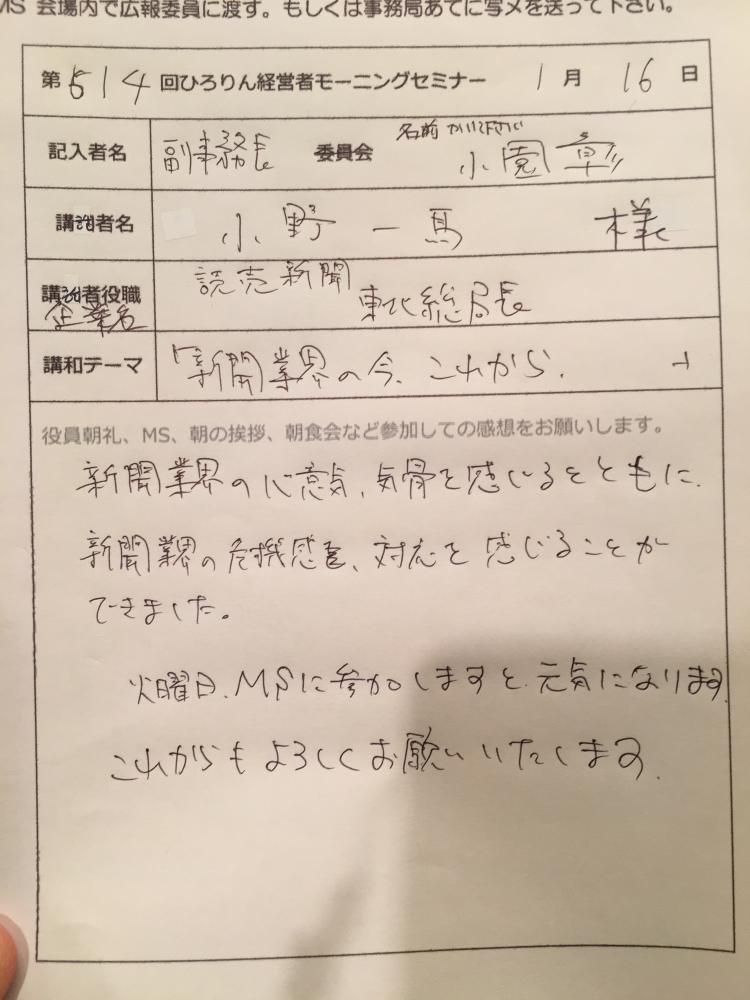 MS 会場内で広報委員に渡す。もしくは事務局あてに写メを送って下さい。
第514回ひろりん経営者モーニングセミナー 1月16日
名前かいて下さい
記入者名 副事務長 委員会 小園 彰
講話者名 小野一馬 様
講話者役職 読売新聞
企業名 東北総局長
講和テーマ 「新聞業界の今、これから」
役員朝礼、MS、朝の挨拶、朝食会など参加しての感想をお願いします。
新聞業界の心意気、気骨を感じるとともに、
新聞業界の危機感、対応を感じることが
できました。
火曜日、MSに参加しますと、元気になります
これからもよろしくお願いいたします。